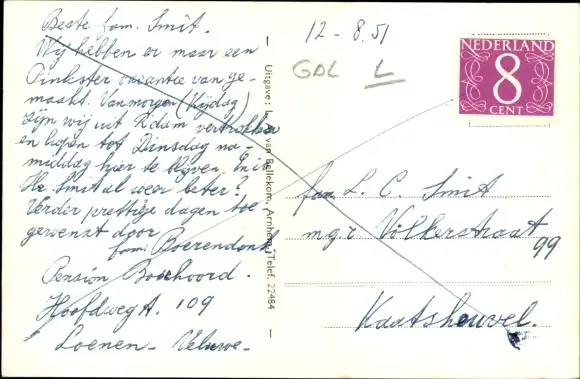 Beste fam. Smit.
Wij hebben er maar een
Pinkster vacantie van ge-
maakt. Vanmorgen (Vrijdag)
zijn wij uit R'dam vertrokken
en hopen tot Dinsdag na-
middag hier te blijven. En is
Hr. Smit al weer beter?
Verder prettige dagen toe
gewenst door
fam. Boerendonk
Pension Boschoord.
Hoofdweg A. 109
Loenen - Veluwe -
Uitgave: van Bellekom, Arnhem, Telef. 22484
12-8.51
GDL L
NEDERLAND
8
CENT
fam L. C. Smit
mgr Völkerstraat
99
Kaatsheuvel.